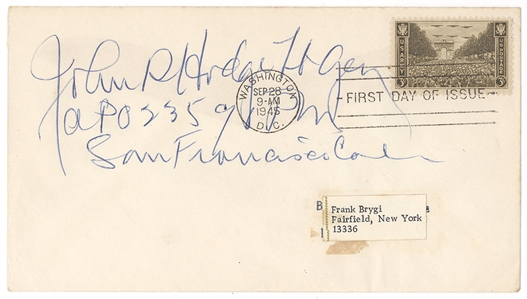 John R Hodge Lt Gen
APO 235 c/o PM
San Francisco Cal
WASHINGTON
SEP 28
9-AM
1945
D.C.
FIRST DAY OF ISSUE
Frank Brygi
Fairfield, New York
13336